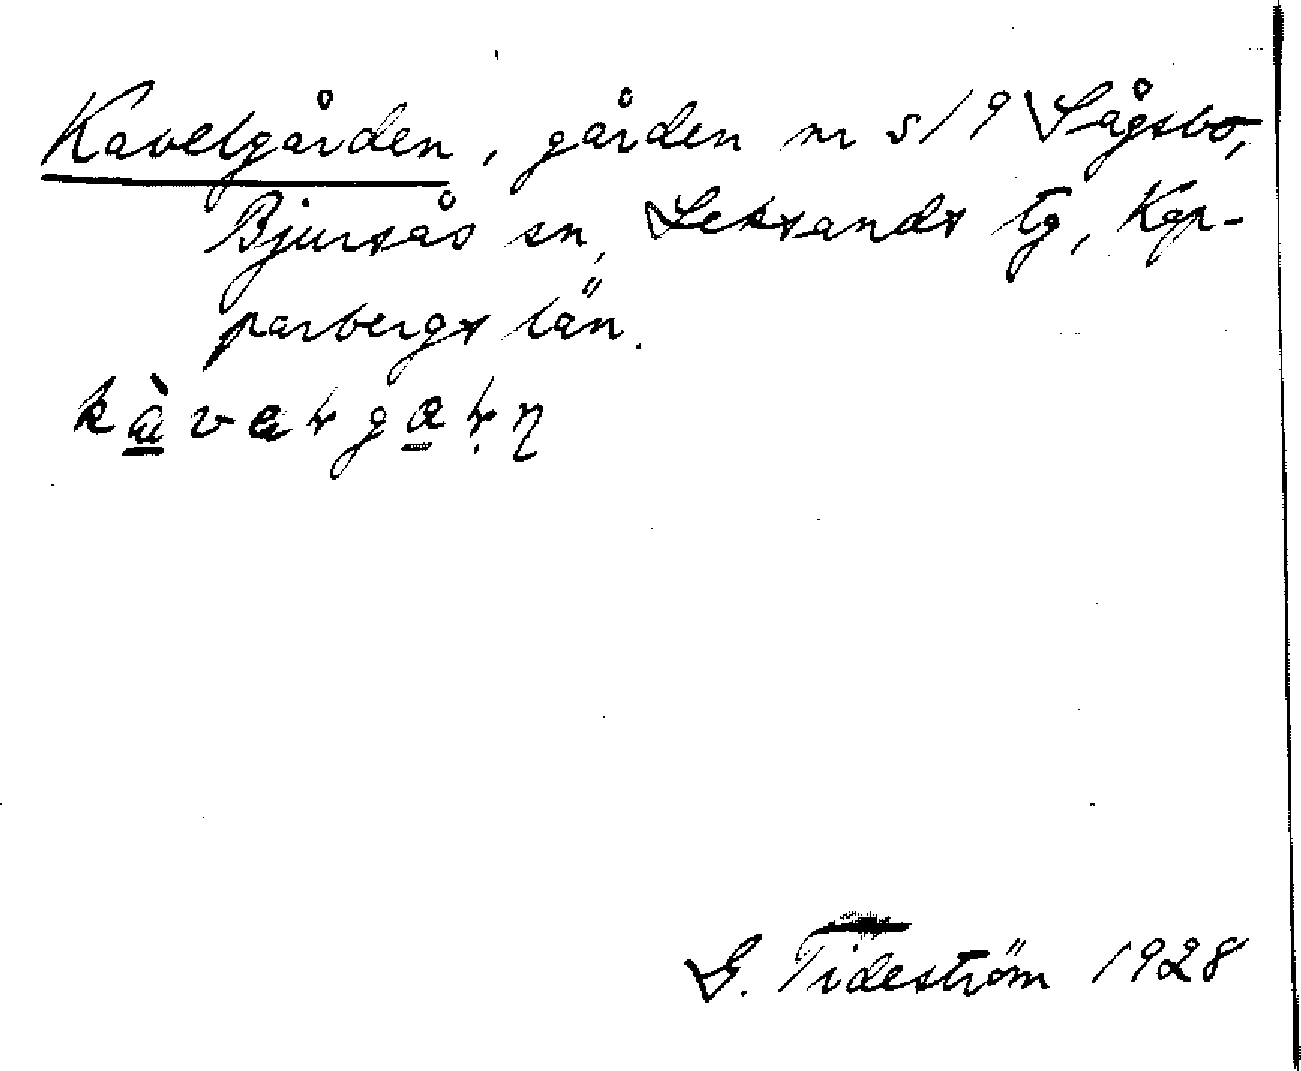 Kavelgården, gården nr 5/9 Sågsbo,
Bjursås sn, Leksands tg, Kop-
parbergs län.
G. Tideström 1928